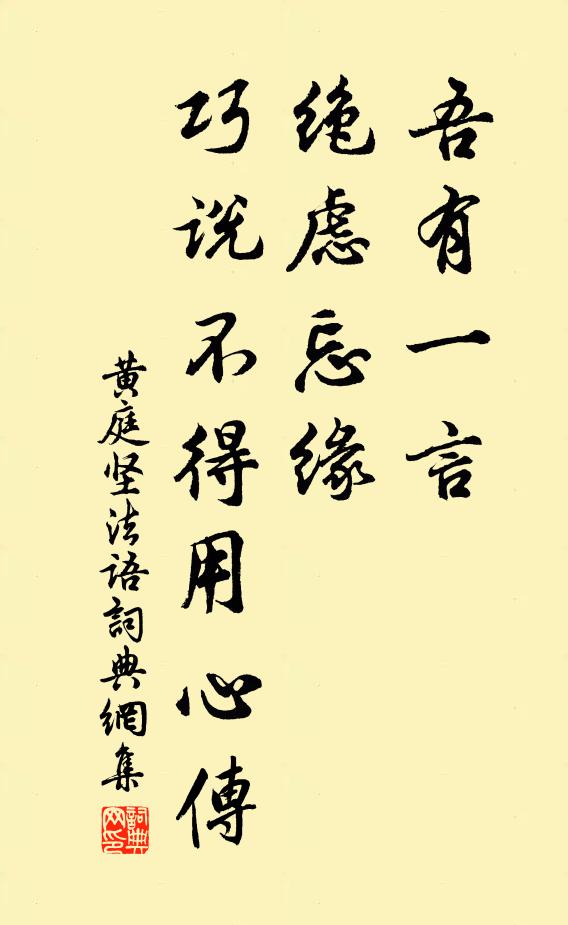 吾有一言
绝虑忘缘
巧说不得用心傳
黄庭坚法语詞典網集
詞典网印